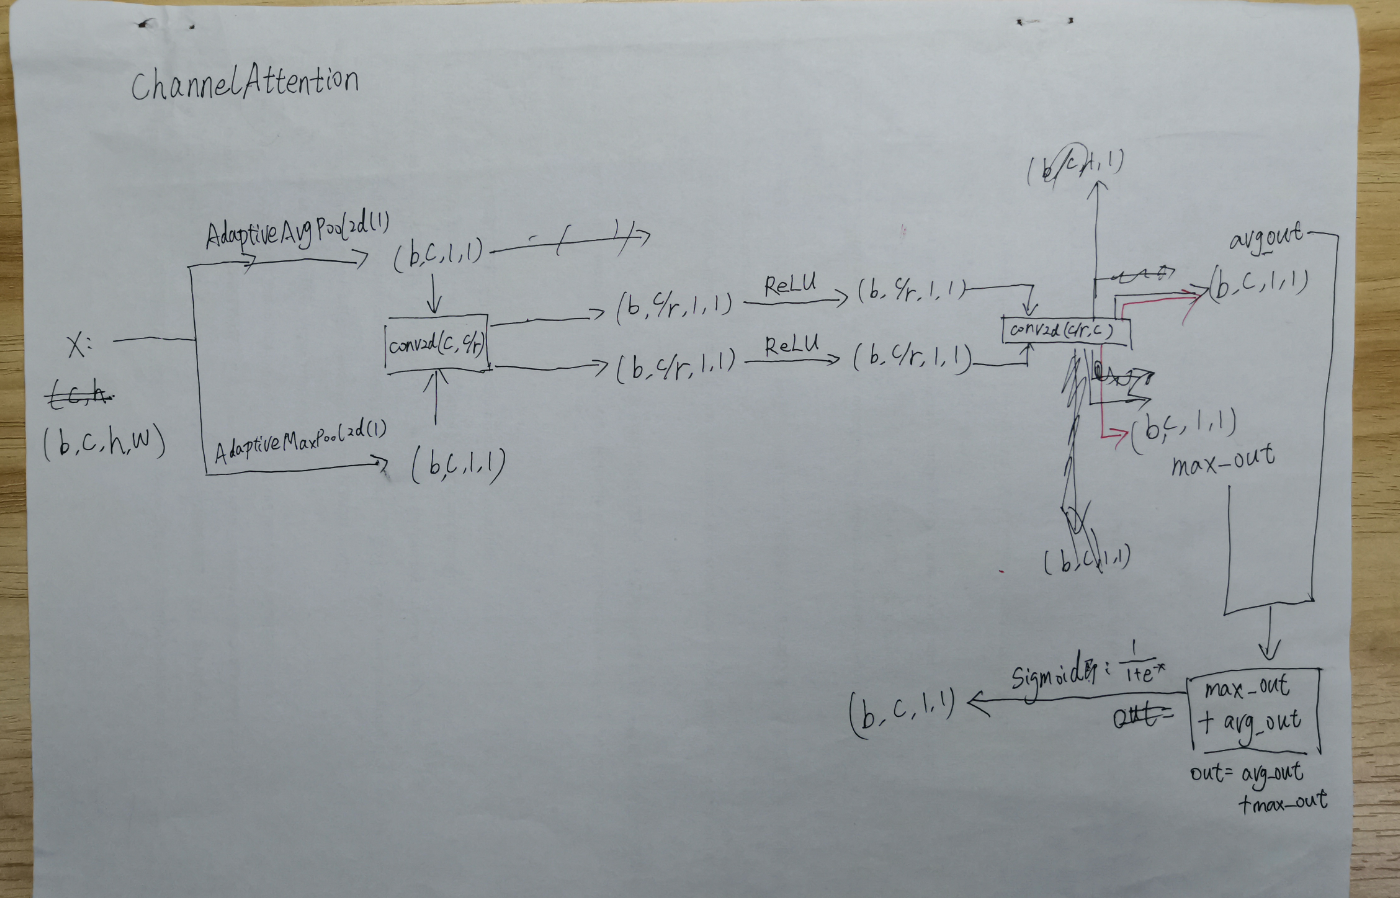 ChannelAttention
(b,c,1,1)
AdaptiveAvgPool2d(1)
(b,c,1,1)
avg_out
(b,c,1,1)
(b,c/r,1,1)
ReLU
(b,c/r,1,1)
X:
conv2d(c,c/r)
conv2d(c/r,c)
(b,c/r,1,1)
ReLU
(b,c/r,1,1)
(c,h
(b,c,h,w)
AdaptiveMaxPool2d(1)
(b,c,1,1)
(b,c,1,1)
max_out
(b,c,1,1)
Sigmoid即: 1/1+e^-x
(b,c,1,1)
out=
max_out
+ avg_out
out= avg_out
+max_out